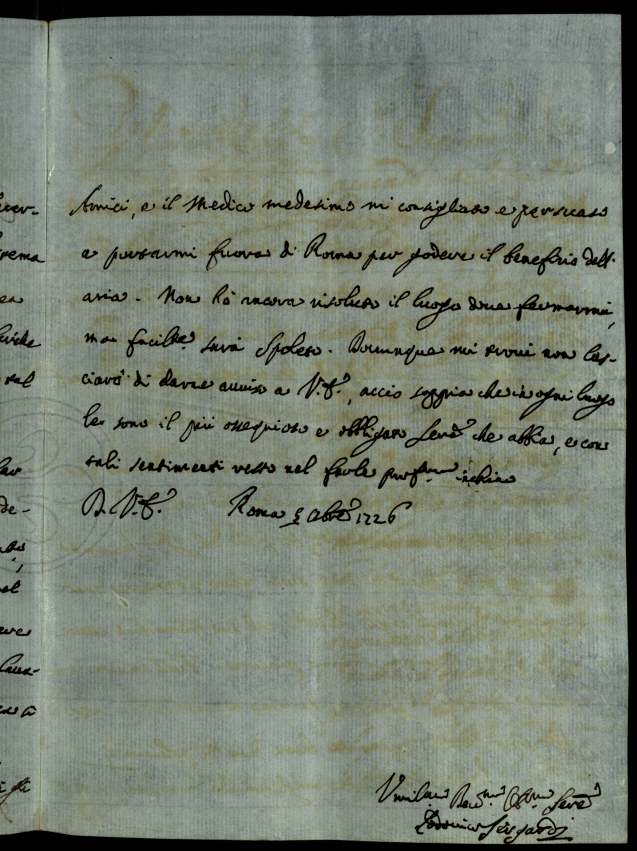 Amici, e il Medico medesimo mi consigliano e persuaso
a portarmi fuora di Roma per godere il beneficio dell'
aria. Non hò ancora risoluto il luogo dove fermarmi,
ma facilte sarà Spoleto. Dovunque mi trovi non las-
ciarò di darne avviso a V.S., acciò sappia che in ogni luogo
le sono il più ossequioso e obbligato Serre che abbia, e con
tali sentimenti resto nel farle profma inchino
D. V.S. Roma 5 Obre 1726
Umilmo Devmo Obmo Serre
Lodovico Sergardi